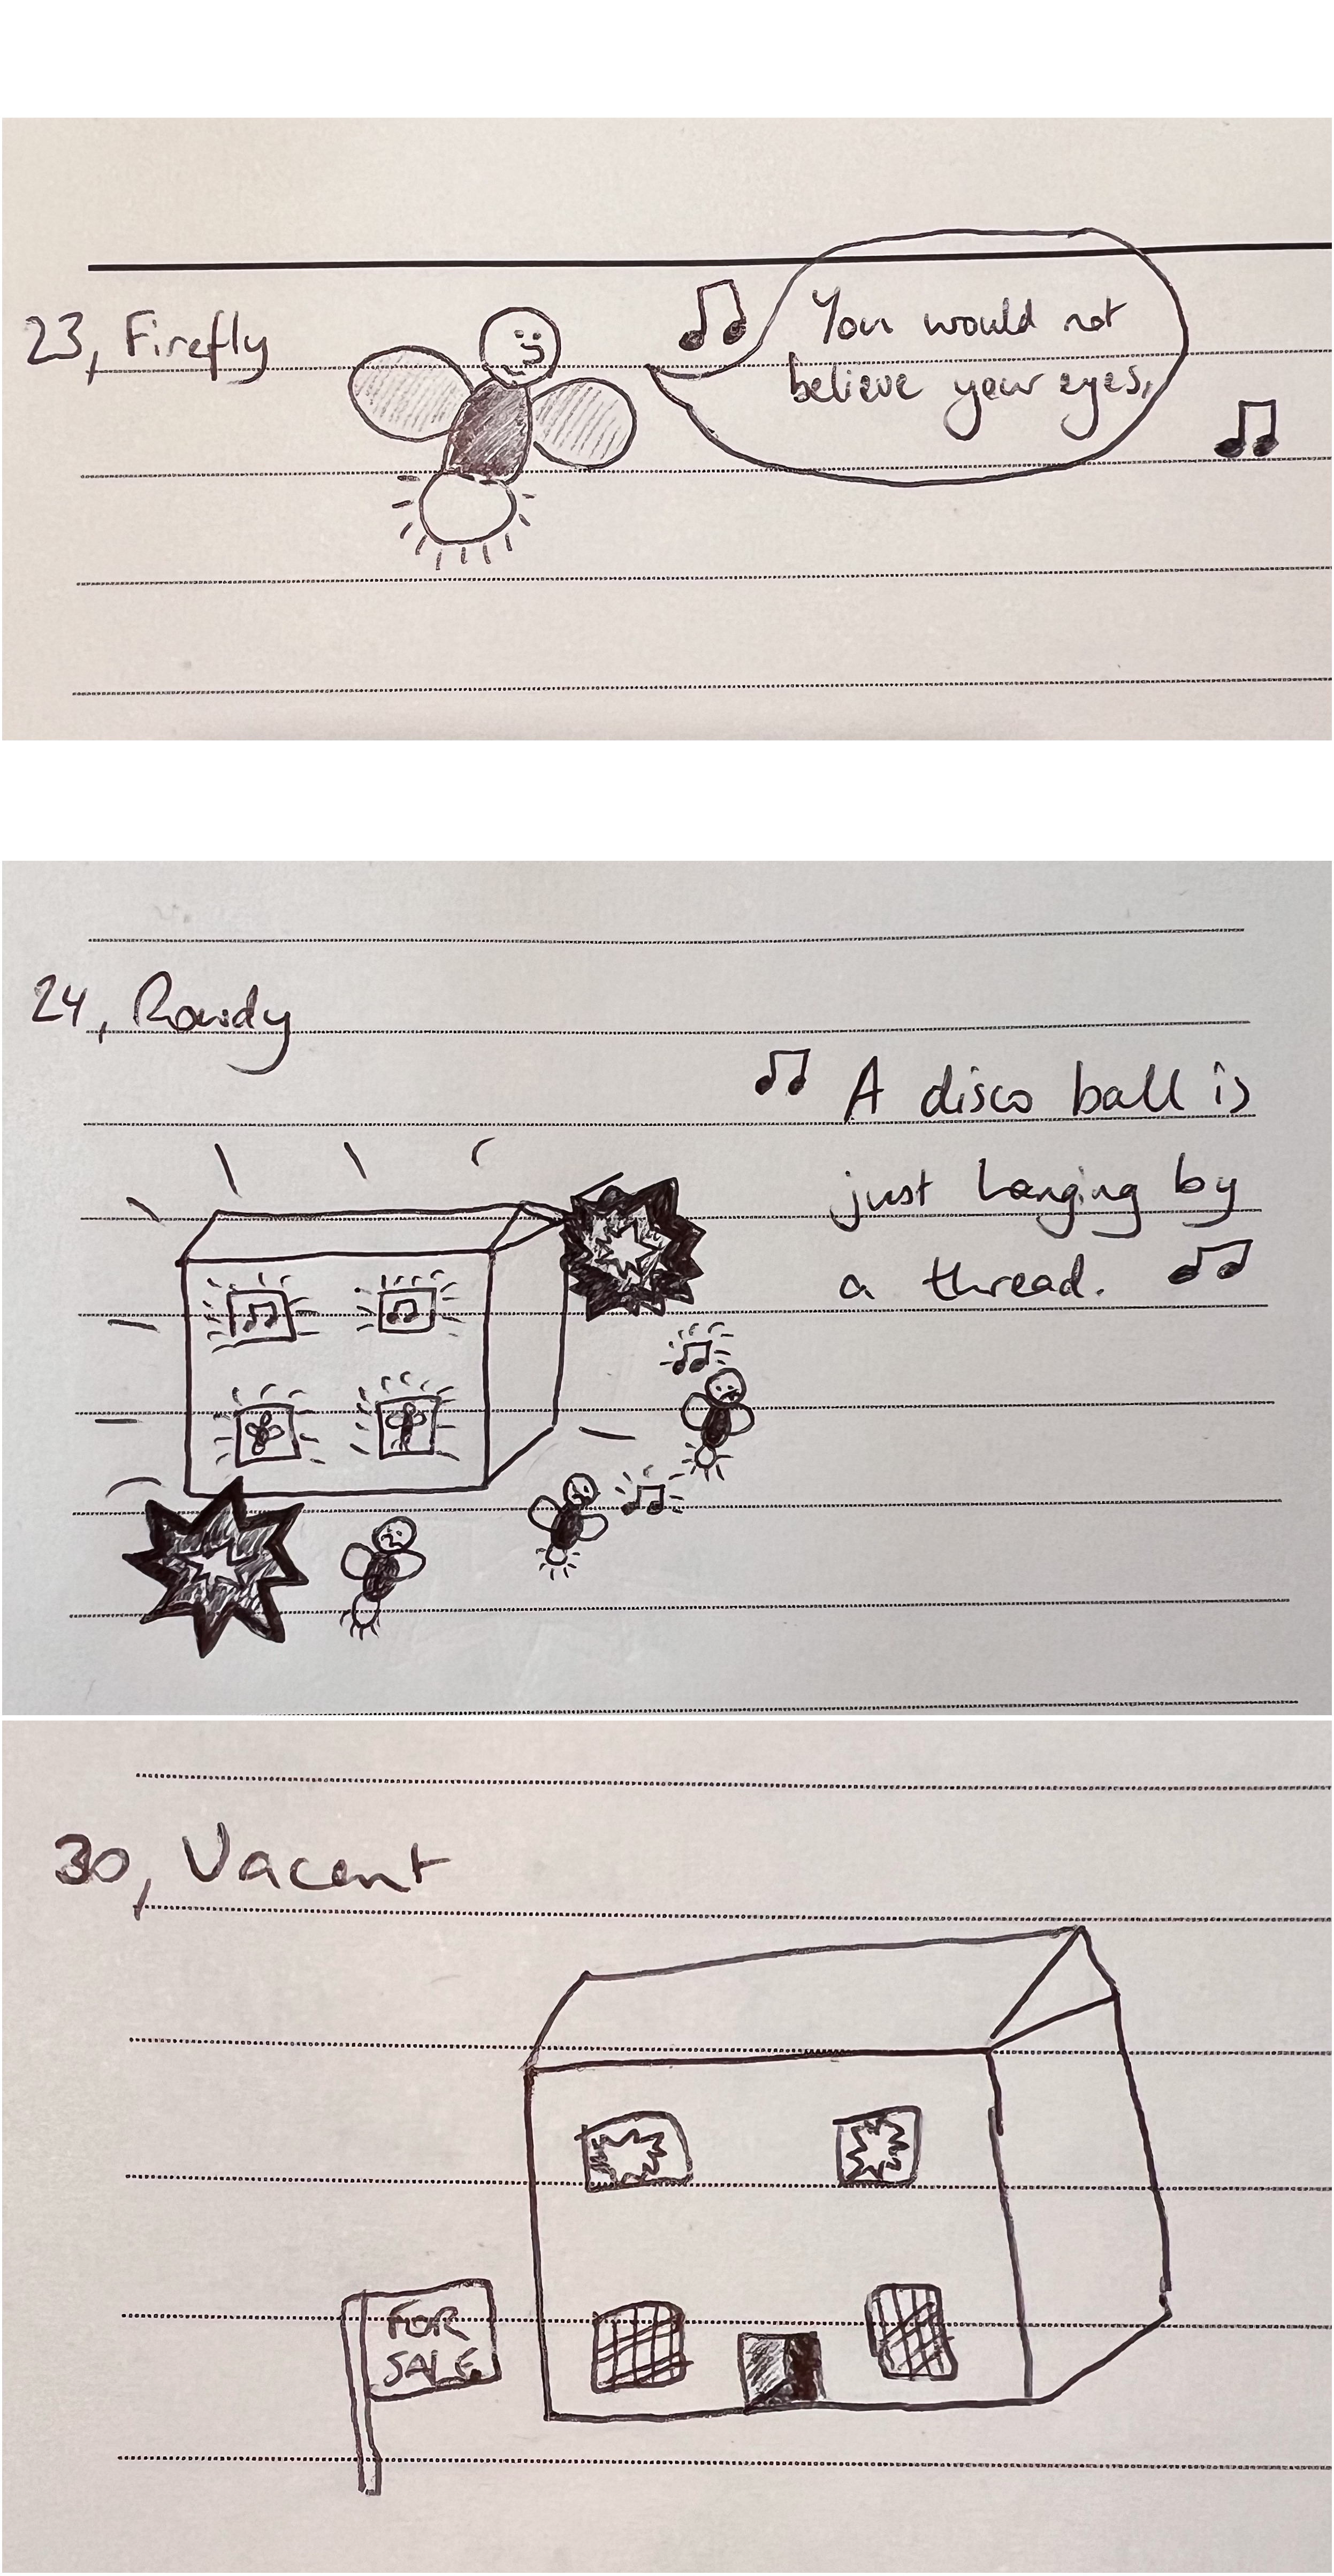 23, Firefly
You would not
believe your eyes,
24, Rowdy
A disco ball is
just hanging by
a thread.
30, Vacant
FOR
SALE